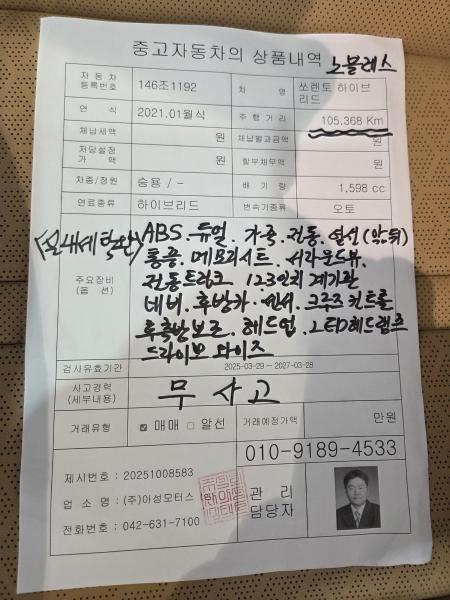 중고자동차의 상품내역 노블레스
자동차등록번호 146조1192 차 명 쏘렌토 하이브리드
연 식 2021.01월식 주 행 거 리 105,368 Km
체납세액 원 체납벌과금액 원
저당설정가 액 원 할부채무액 원
차종/정원 승용 / - 배 기 량 1,598 cc
연료종류 하이브리드 변속기종류 오토
(실내세탁완) ABS. 듀얼. 가죽. 전동. 열선(앞.뒤)
통풍. 메모리시트. 서라운드뷰.
주요장비(옵 션) 전동트렁크 12.3인치 계기판
네비. 후방카. 센서. 크루즈 컨트롤
후측방보조. 헤드업. LED헤드램프
드라이브 와이즈
검사유효기간 2025-03-29 ~ 2027-03-28
사고경력(세부내용) 무 사고
거래유형 매매 알선 거래예정가액 만원
010-9189-4533
제시번호 : 20251008583
업 소 명 : (주)아성모터스 관 리
담당자
전화번호 : 042-631-7100